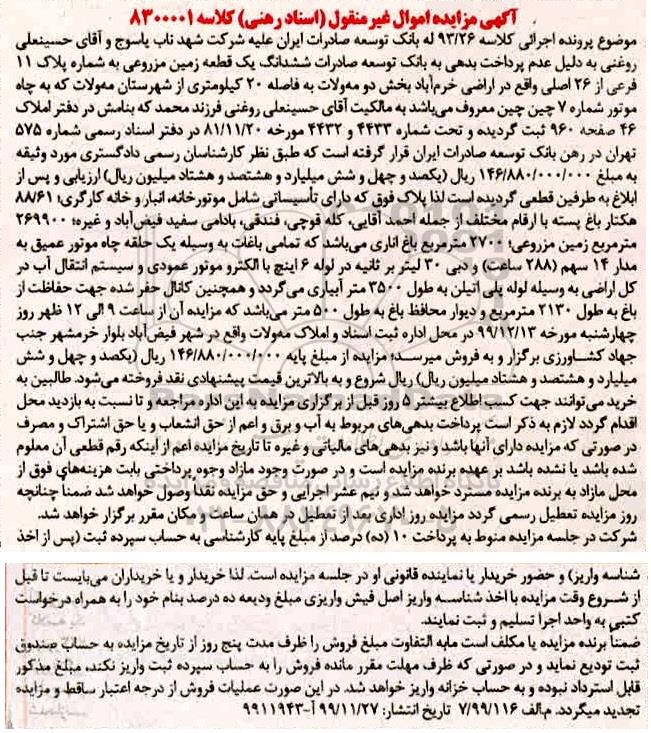 آگهی مزایده اموال غیر منقول (اسناد رهنی) کلاسه ۸۳۰۰۰۰۱
موضوع پرونده اجرائی کلاسه ۹۳/۲۶ له بانک توسعه صادرات ایران علیه شرکت شهد ناب یاسوج و آقای حسینعلی
روغنی به دلیل عدم پرداخت بدهی به بانک توسعه صادرات ششدانگ یک قطعه زمین مزروعی به شماره پلاک ۱۱
فرعی از ۲۶ اصلی واقع در اراضی خرم‌آباد بخش دو مه‌ولات به فاصله ۲۰ کیلومتری از شهرستان مه‌ولات که به چاه
موتور شماره ۷ چین چین معروف می‌باشد به مالکیت آقای حسینعلی روغنی فرزند محمد که بنامش در دفتر املاک
۴۶ صفحه ۹۶۰ ثبت گردیده و تحت شماره ۴۴۳۳ و ۴۴۳۲ مورخه ۸۱/۱۱/۲۰ در دفتر اسناد رسمی شماره ۵۷۵
تهران در رهن بانک توسعه صادرات ایران قرار گرفته است که طبق نظر کارشناسان رسمی دادگستری مورد وثیقه
به مبلغ ۱۴۶/۸۸۰/۰۰۰/۰۰۰ ریال (یکصد و چهل و شش میلیارد و هشتصد و هشتاد میلیون ریال) ارزیابی و پس از
ابلاغ به طرفین قطعی گردیده است لذا پلاک فوق که دارای تأسیساتی شامل موتورخانه، انبار و خانه کارگری؛ ۸۸/۶۱
هکتار باغ پسته با ارقام مختلف از جمله احمد آقایی، کله قوچی، فندقی، بادامی سفید فیض‌آباد و غیره؛ ۲۶۹۹۰۰
مترمربع زمین مزروعی؛ ۲۷۰۰ مترمربع باغ اناری می‌باشد که تمامی باغات به وسیله یک حلقه چاه موتور عمیق به
مدار ۱۴ سهم (۲۸۸ ساعت) و دبی ۳۰ لیتر بر ثانیه در لوله ۶ اینچ با الکترو موتور عمودی و سیستم انتقال آب در
کل اراضی به وسیله لوله پلی اتیلن به طول ۳۵۰۰ متر آبیاری می‌گردد و همچنین کانال حفر شده جهت حفاظت از
باغ به طول ۲۱۳۰ مترمربع و دیوار محافظ باغ به طول ۵۰۰ متر می‌باشد که مزایده آن از ساعت ۹ الی ۱۲ ظهر روز
چهارشنبه مورخه ۹۹/۱۲/۱۳ در محل اداره ثبت اسناد و املاک مه‌ولات واقع در شهر فیض‌آباد بلوار خرمشهر جنب
جهاد کشاورزی برگزار و به فروش میرسد؛ مزایده از مبلغ پایه ۱۴۶/۸۸۰/۰۰۰/۰۰۰ ریال (یکصد و چهل و شش
میلیارد و هشتصد و هشتاد میلیون ریال) ریال شروع و به بالاترین قیمت پیشنهادی نقد فروخته می‌شود. طالبین به
خرید می‌توانند جهت کسب اطلاع بیشتر ۵ روز قبل از برگزاری مزایده به این اداره مراجعه و تا نسبت به بازدید محل
اقدام گردد لازم به ذکر است پرداخت بدهی‌های مربوط به آب و برق و اعم از حق انشعاب و یا حق اشتراک و مصرف
در صورتی که مزایده دارای آنها باشد و نیز بدهی‌های مالیاتی و غیره تا تاریخ مزایده اعم از اینکه رقم قطعی آن معلوم
شده باشد یا نشده باشد بر عهده برنده مزایده است و در صورت وجود مازاد وجوه پرداختی بابت هزینه‌های فوق از
محل مازاد به برنده مزایده مسترد خواهد شد و نیم عشر اجرایی و حق مزایده نقداً وصول خواهد شد ضمناً چنانچه
روز مزایده تعطیل رسمی گردد مزایده روز اداری بعد از تعطیل در همان ساعت و مکان مقرر برگزار خواهد شد.
شرکت در جلسه مزایده منوط به پرداخت ۱۰ (ده) درصد از مبلغ پایه کارشناسی به حساب سپرده ثبت (پس از اخذ
شناسه واریز) و حضور خریدار یا نماینده قانونی او در جلسه مزایده است. لذا خریدار و یا خریداران می‌بایست تا قبل
از شروع وقت مزایده با اخذ شناسه واریز اصل فیش واریزی مبلغ ودیعه ده درصد بنام خود را به همراه درخواست
کتبی به واحد اجرا تسلیم و ثبت نمایند.
ضمناً برنده مزایده یا مکلف است مابه التفاوت مبلغ فروش را ظرف مدت پنج روز از تاریخ مزایده به حساب صندوق
ثبت تودیع نماید و در صورتی که ظرف مهلت مقرر مانده فروش را به حساب سپرده ثبت واریز نکند، مبلغ مذکور
قابل استرداد نبوده و به حساب خزانه واریز خواهد شد. در این صورت عملیات فروش از درجه اعتبار ساقط و مزایده
تجدید میگردد. م.الف ۷/۹۹/۱۱۶ تاریخ انتشار: ۹۹/۱۱/۲۷ آ-۹۹۱۱۹۴۳